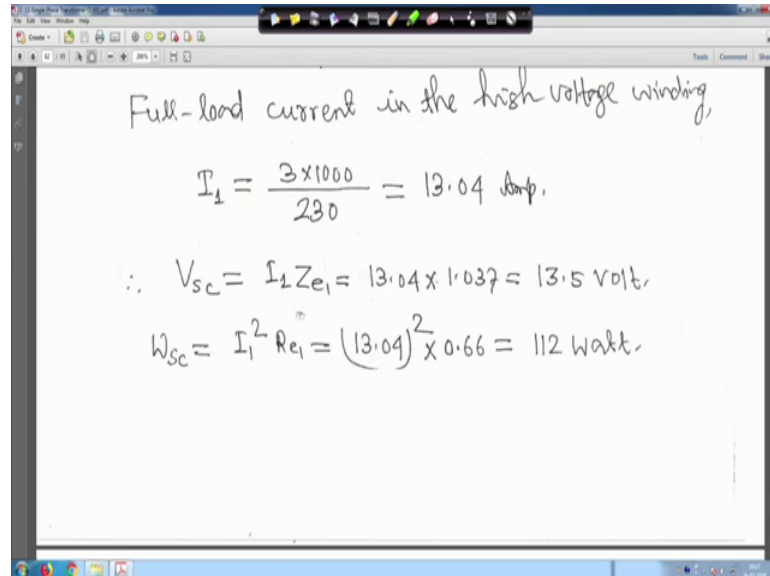 File Edit View Window Help
Create
Tools Comment
Full-load current in the high voltage winding,
I₁ = 3×1000 / 230 = 13.04 Amp.
∴ Vsc = I₁Ze₁ = 13.04 × 1.037 = 13.5 volt.
Wsc = I₁² Re₁ = (13.04)² × 0.66 = 112 Watt.